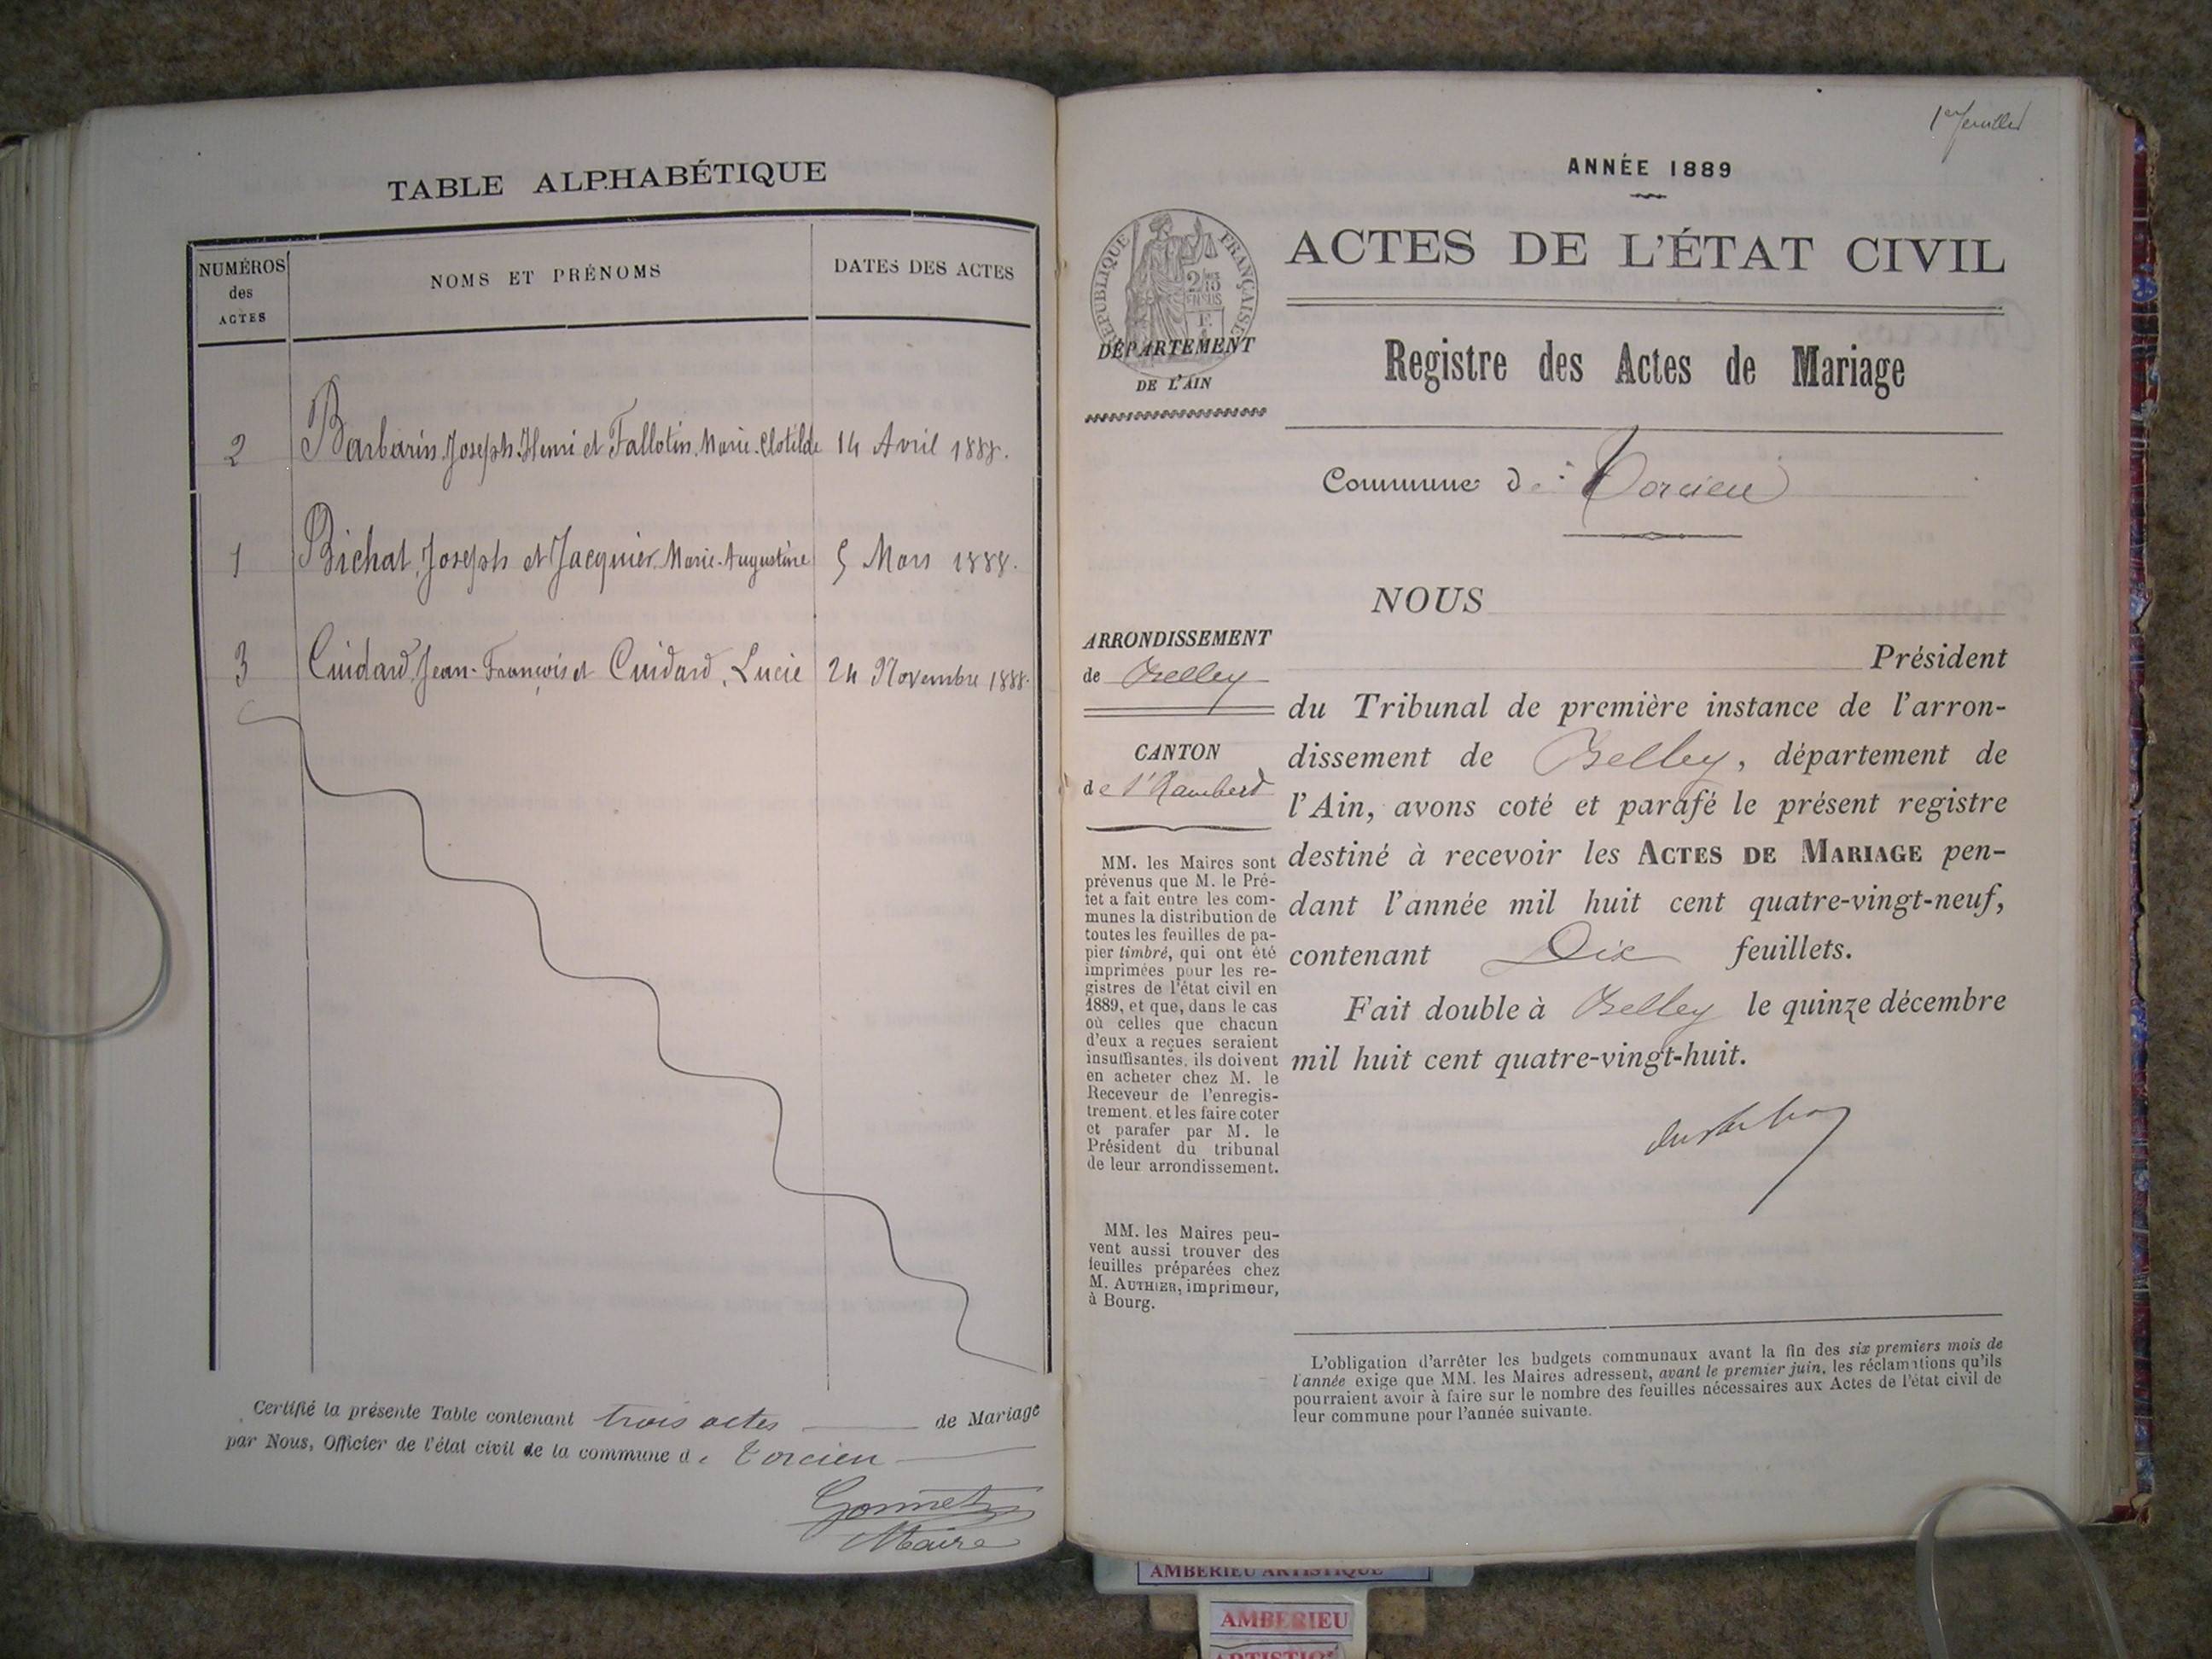 TABLE ALPHABÉTIQUE
NUMÉROS des ACTES
NOMS ET PRÉNOMS
DATES DES ACTES
2 Barbarin, Joseph-Henri et Fallotin, Marie-Clotilde 14 Avril 1888.
1 Bichat, Joseph et Jacquier, Marie-Augustine 5 Mars 1888.
3 Cuidard, Jean-François et Cuidard, Lucie 24 Novembre 1888.
Certifié la présente Table contenant trois actes de Mariage
par Nous, Officier de l'état civil de la commune de Torcieu
Gonnet
Maire
1er feuillet
ANNÉE 1889
RÉPUBLIQUE FRANÇAISE
DÉPARTEMENT
DE L'AIN
ACTES DE L'ÉTAT CIVIL
Registre des Actes de Mariage
Commune de : Torcieu
ARRONDISSEMENT
de Belley
CANTON
de St Rambert
MM. les Maires sont
prévenus que M. le Pré-
fet a fait entre les com-
munes la distribution de
toutes les feuilles de pa-
pier timbré, qui ont été
imprimées pour les re-
gistres de l'état civil en
1889, et que, dans le cas
où celles que chacun
d'eux a reçues seraient
insuffisantes, ils doivent
en acheter chez M. le
Receveur de l'enregis-
trement, et les faire coter
et parafer par M. le
Président du tribunal
de leur arrondissement.
MM. les Maires peu-
vent aussi trouver des
feuilles préparées chez
M. AUTHIER, imprimeur,
à Bourg.
NOUS
Président
du Tribunal de première instance de l'arron-
dissement de Belley, département de
l'Ain, avons coté et parafé le présent registre
destiné à recevoir les ACTES DE MARIAGE pen-
dant l'année mil huit cent quatre-vingt-neuf,
contenant Dix feuillets.
Fait double à Belley le quinze décembre
mil huit cent quatre-vingt-huit.
L'obligation d'arrêter les budgets communaux avant la fin des six premiers mois de
l'année exige que MM. les Maires adressent, avant le premier juin, les réclamations qu'ils
pourraient avoir à faire sur le nombre des feuilles nécessaires aux Actes de l'état civil de
leur commune pour l'année suivante.
AMBERIEU ARTISTIQUE
AMBERIEU
ARTISTIQUE